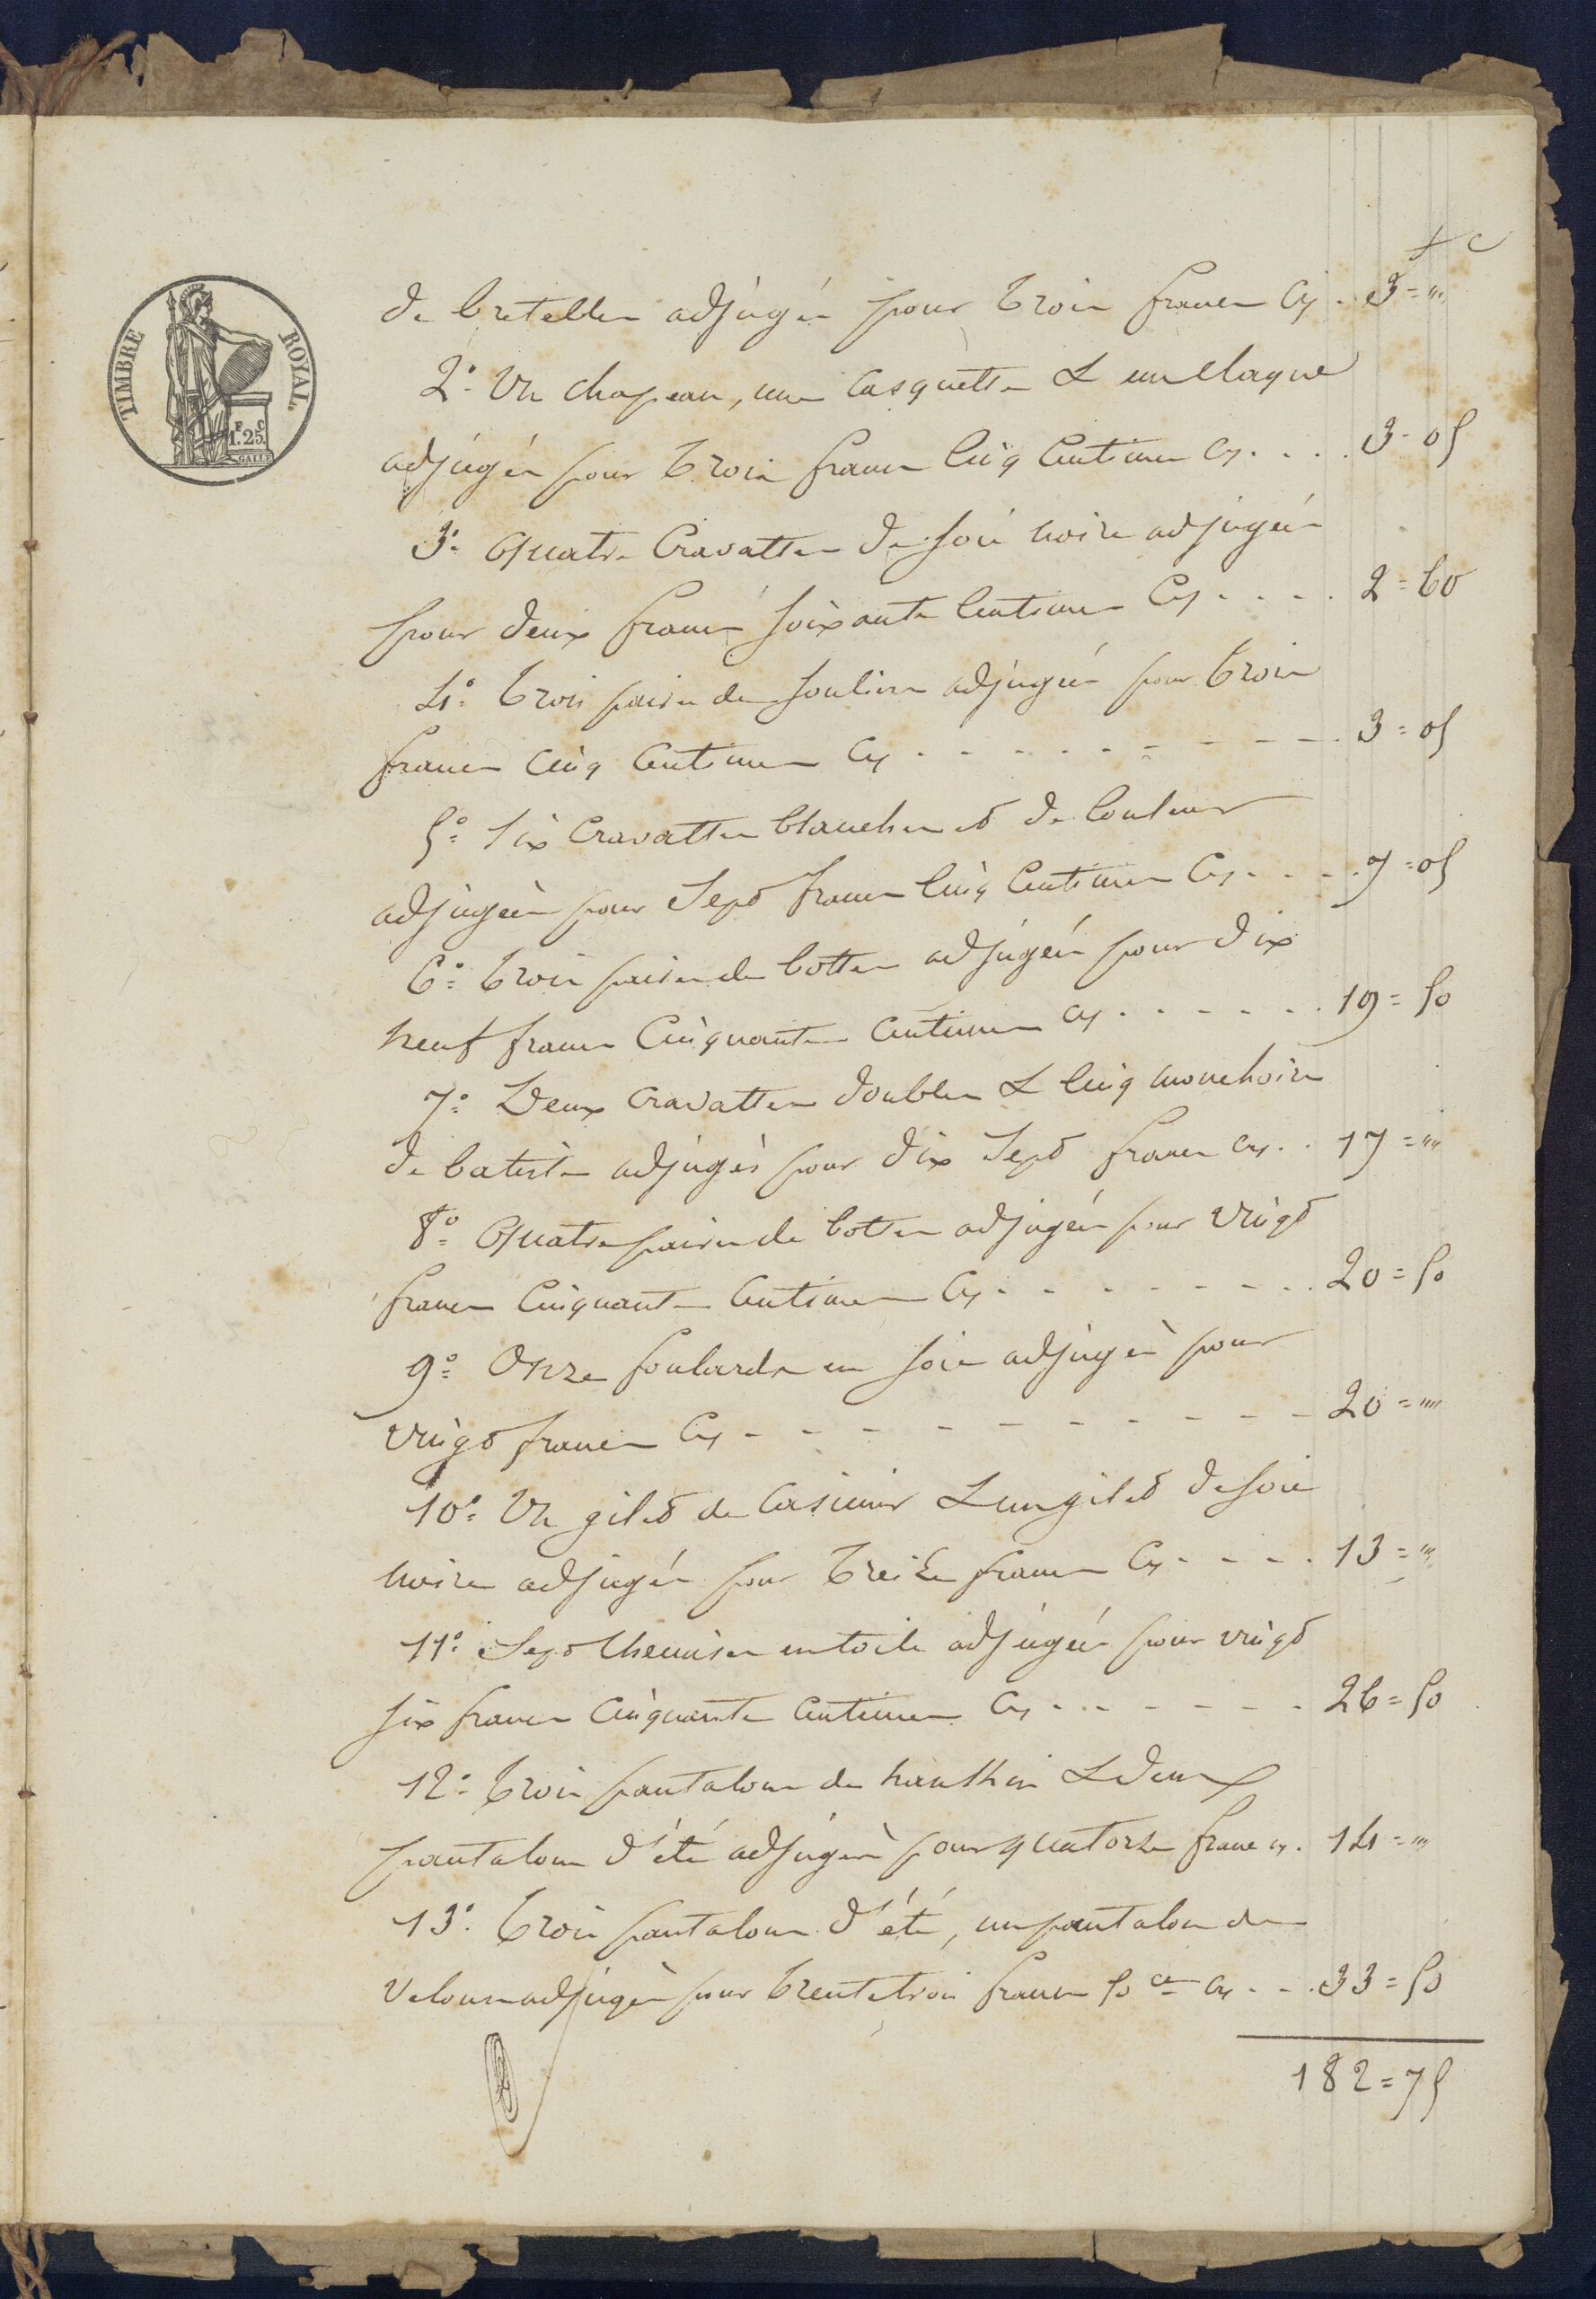 f c
TIMBRE ROYAL.
F C
1.25.
GALLE
de bretelles adjugées pour trois francs Cy . 3 = "
2° Un chapeau, une Casquette & un claque
adjugés pour trois francs Cinq Centimes Cy . . . . 3 = 05
3° Quatre Cravattes de soie noire adjugées
pour deux francs soixante Centimes Cy . . . . 2 = 60
4° trois paires de souliers adjugées pour trois
francs Cinq Centimes Cy . . . . . . . . . 3 = 05
5° Six Cravattes blanches et de Couleur
adjugées pour Sept francs Cinq Centimes Cy . . . . 7 = 05
6° trois paires de bottes adjugées pour dix
neuf francs Cinquante Centimes Cy . . . . . . 19 = 50
7° Deux Cravattes doubles & Cinq mouchoirs
de batiste adjugés pour dix Sept francs Cy . . 17 = "
8° Quatre paires de bottes adjugées pour vingt
francs Cinquante Centimes Cy . . . . . . . 20 = 50
9° Onze foulards en soie adjugés pour
vingt francs Cy . . . . . . . . . . 20 = "
10° Un gilet de Casimir & un gilet de soie
noire adjugés pour treize francs Cy . . . . 13 = "
11° Sept Chemises en toile adjugées pour vingt
six francs Cinquante Centimes Cy . . . . . . 26 = 50
12° trois pantalons de nankin & deux
pantalons d'été adjugés pour quatorze francs Cy . 14 = "
13° trois pantalons d'été, un pantalon de
velours adjugés pour trente trois francs 50 ces Cy . . . 33 = 50
182 = 75